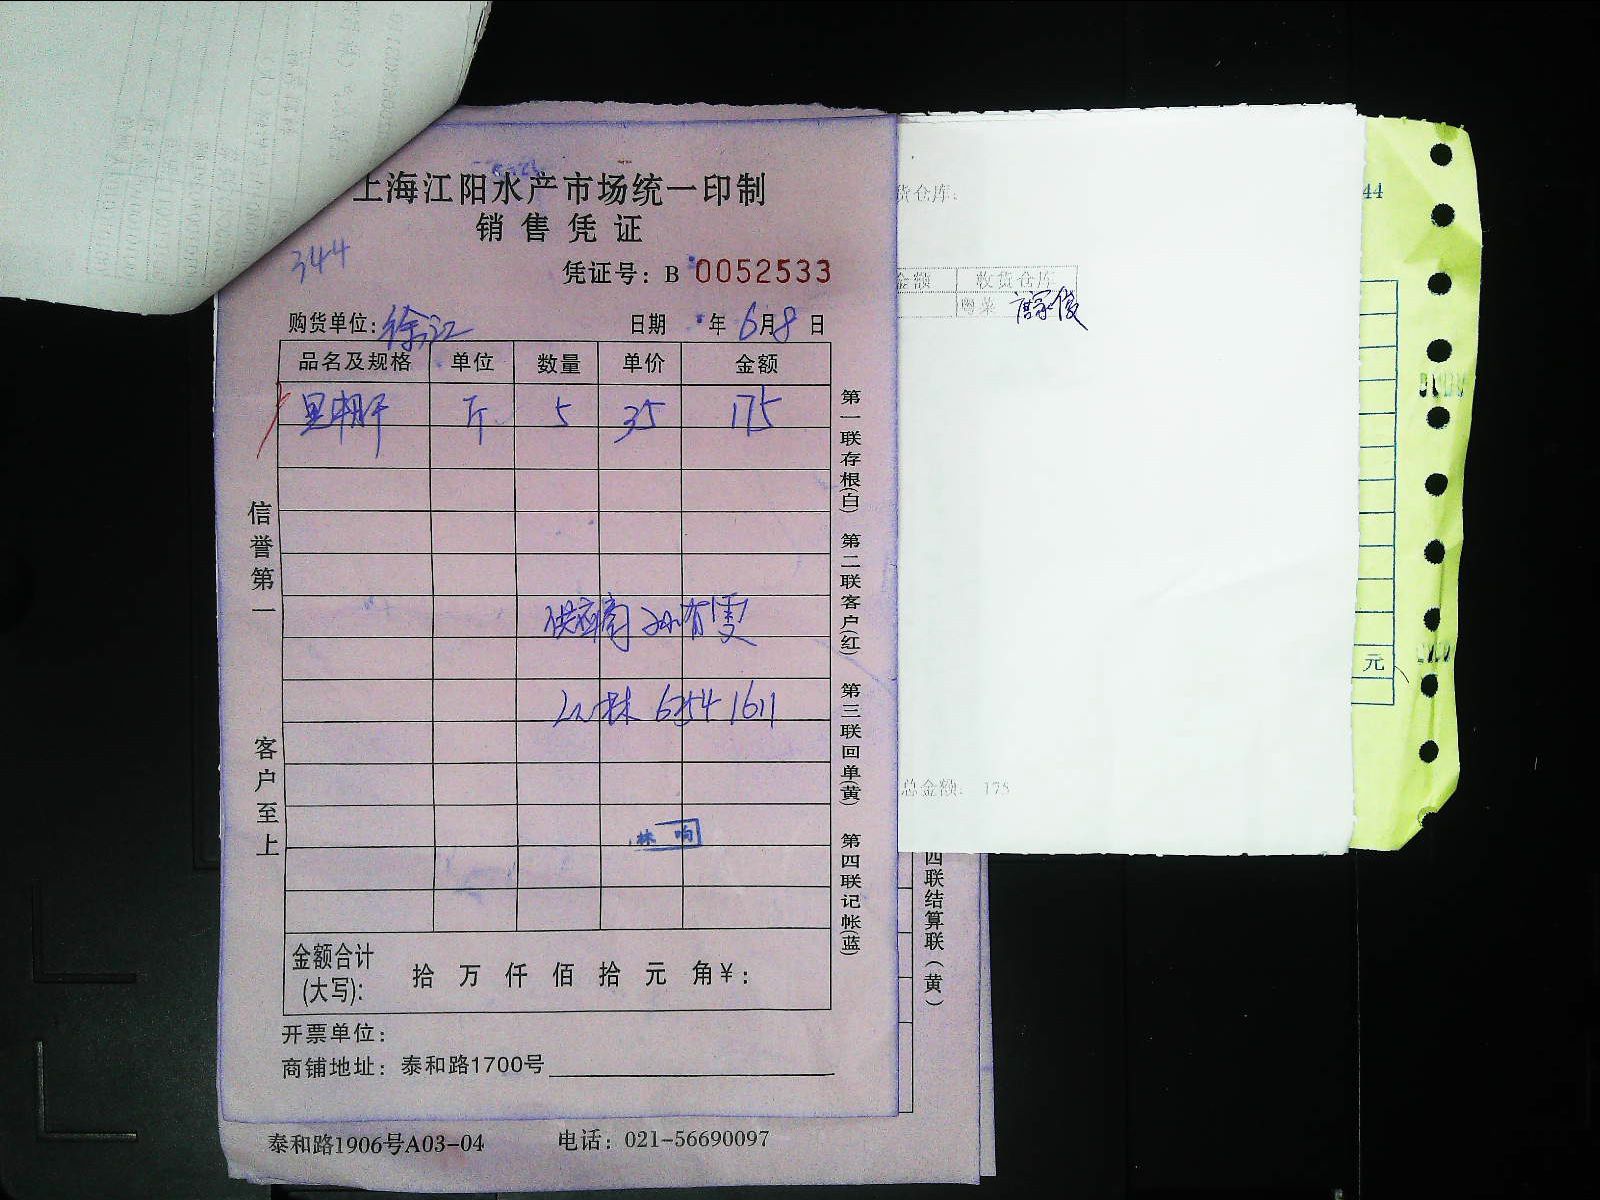 上海江阳水产市场统一印制
销售凭证
344
凭证号: B 0052533
购货单位: 徐汇 日期 年 6月8日
品名及规格 单位 数量 单价 金额
斤 5 35 175
供应商 孙有雯
林 6254 1611
林响
金额合计
(大写): 拾 万 仟 佰 拾 元 角¥:
开票单位:
商铺地址: 泰和路1700号
泰和路1906号A03-04 电话: 021-56690097
信誉第一
客户至上
第一联存根(白) 第二联客户(红) 第三联回单(黄) 第四联记帐(蓝)
货仓库:
金额 收货仓库
粤菜
总金额: 175
四联结算联(黄)
44
元